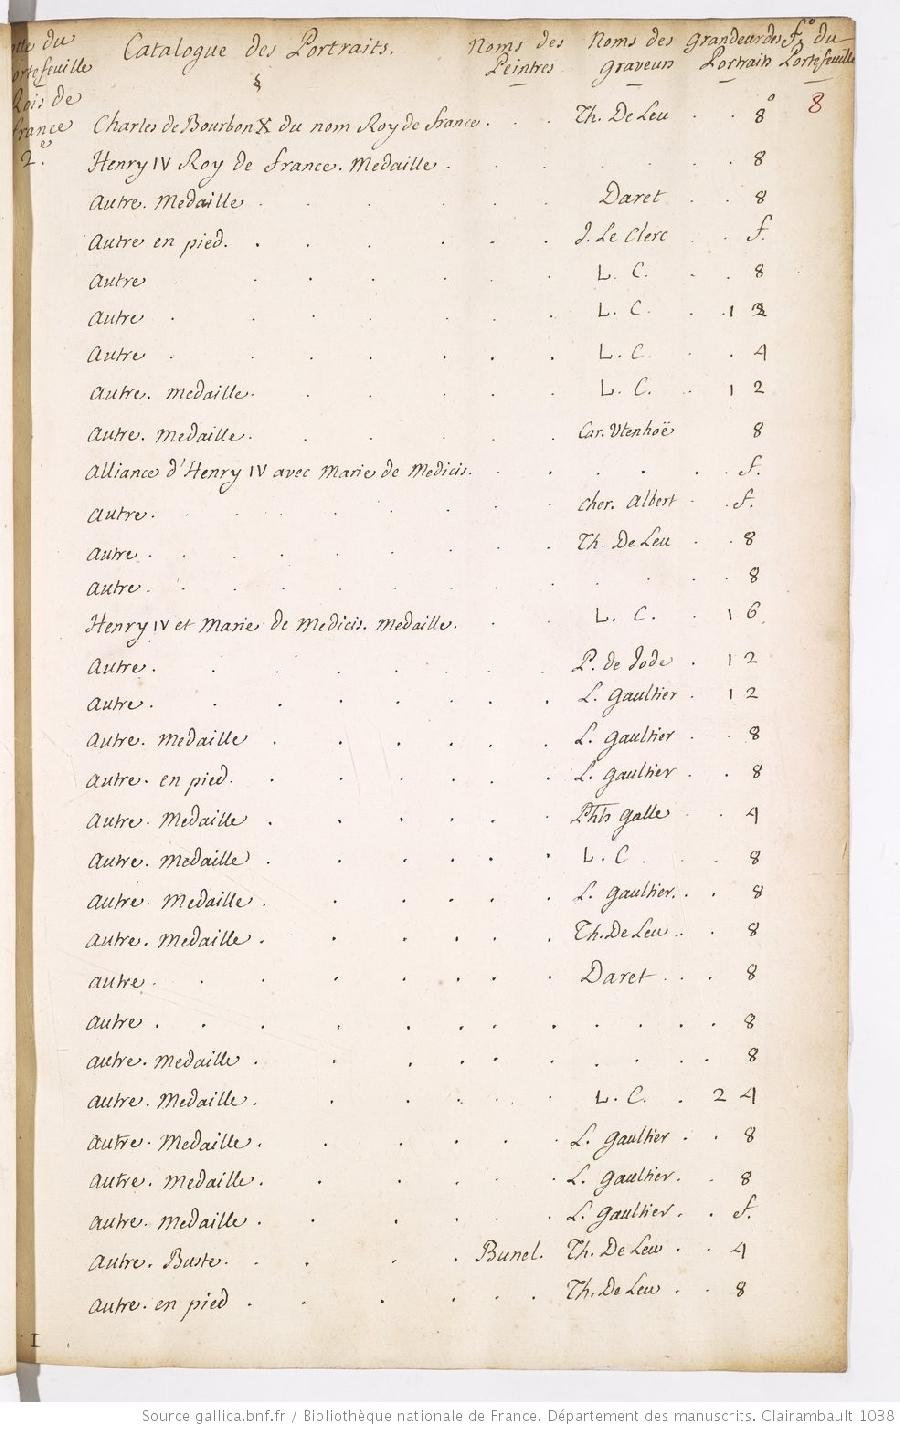 Catalogue des Portraits. Noms des Peintres Noms des graveurs Grandeur des Portraits f.º du Portefeuille
§
Rois de france 2.e
8
Charles de Bourbon X du nom Roy de france . . . Th. De Leu . . 8º
Henry IV Roy de france. Medaille . . . . . 8
autre. Medaille . . . . . Daret . . 8
autre en pied. . . . . . J. Le Clerc . . f.
autre . . . . . L. C. . . 8
autre . . . . . L. C. . . 1
autre . . . . . L. C. . . 4
autre. medaille. . . . . L. C. . 1 2
autre. medaille. . . . . Car. Utenhoë 8
alliance d'Henry IV avec Marie de Medicis. . . . . . f.
autre. . . . . . cher. Albert . . f.
autre . . . . . . Th De Leu . . 8
autre . . . . . . . . 8
Henry IV et Marie de Medicis. medaille. . . L. C. . 1 6.
autre. . . . . . P. de Jode . 1 2
autre. . . . . . L. gaultier . 1 2
autre. medaille . . . . . L. gaultier . . 8
autre. en pied. . . . . . L. gaultier . . 8
autre. Medaille . . . . . galle . . 4
autre. medaille . . . . . L. C . . 8
autre. medaille . . . . . L. gaultier. . . 8
autre. medaille . . . . . Th. De Leu . . 8
autre. . . . . . . Daret . . . 8
autre . . . . . . . . . . 8
autre. medaille . . . . . . . . 8
autre. medaille. . . . . L. C. . 2 4
autre. medaille . . . . . L. gaultier . . 8
autre. medaille. . . . . L. gaultier. . 8
autre. medaille . . . . . L. gaultier. . f.
autre. Buste. . . . . Bunel. Th. De Leu . . 4
autre. en pied . . . . . . Th. De Leu . . 8
I
Source gallica.bnf.fr / Bibliothèque nationale de France. Département des manuscrits. Clairambault 1038